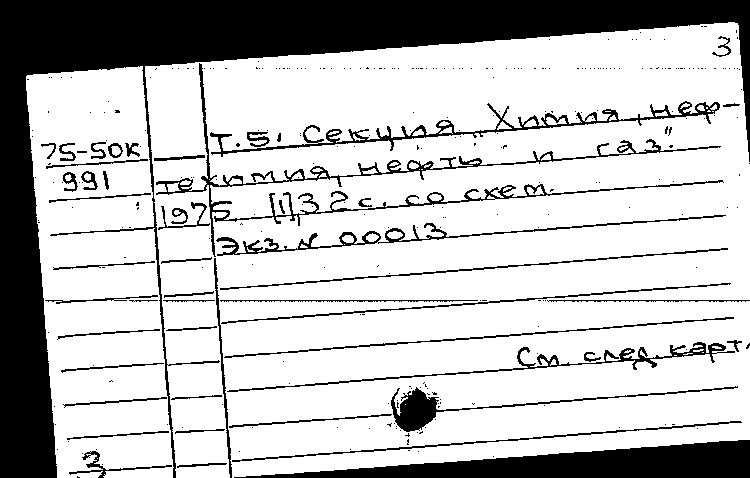 3
75-50к
991
Т.5. Секция „Химия, неф-
техимия, нефть и газ".
1975. [1], 32 с. со схем.
Экз. № 00013
См. след. карт.
3